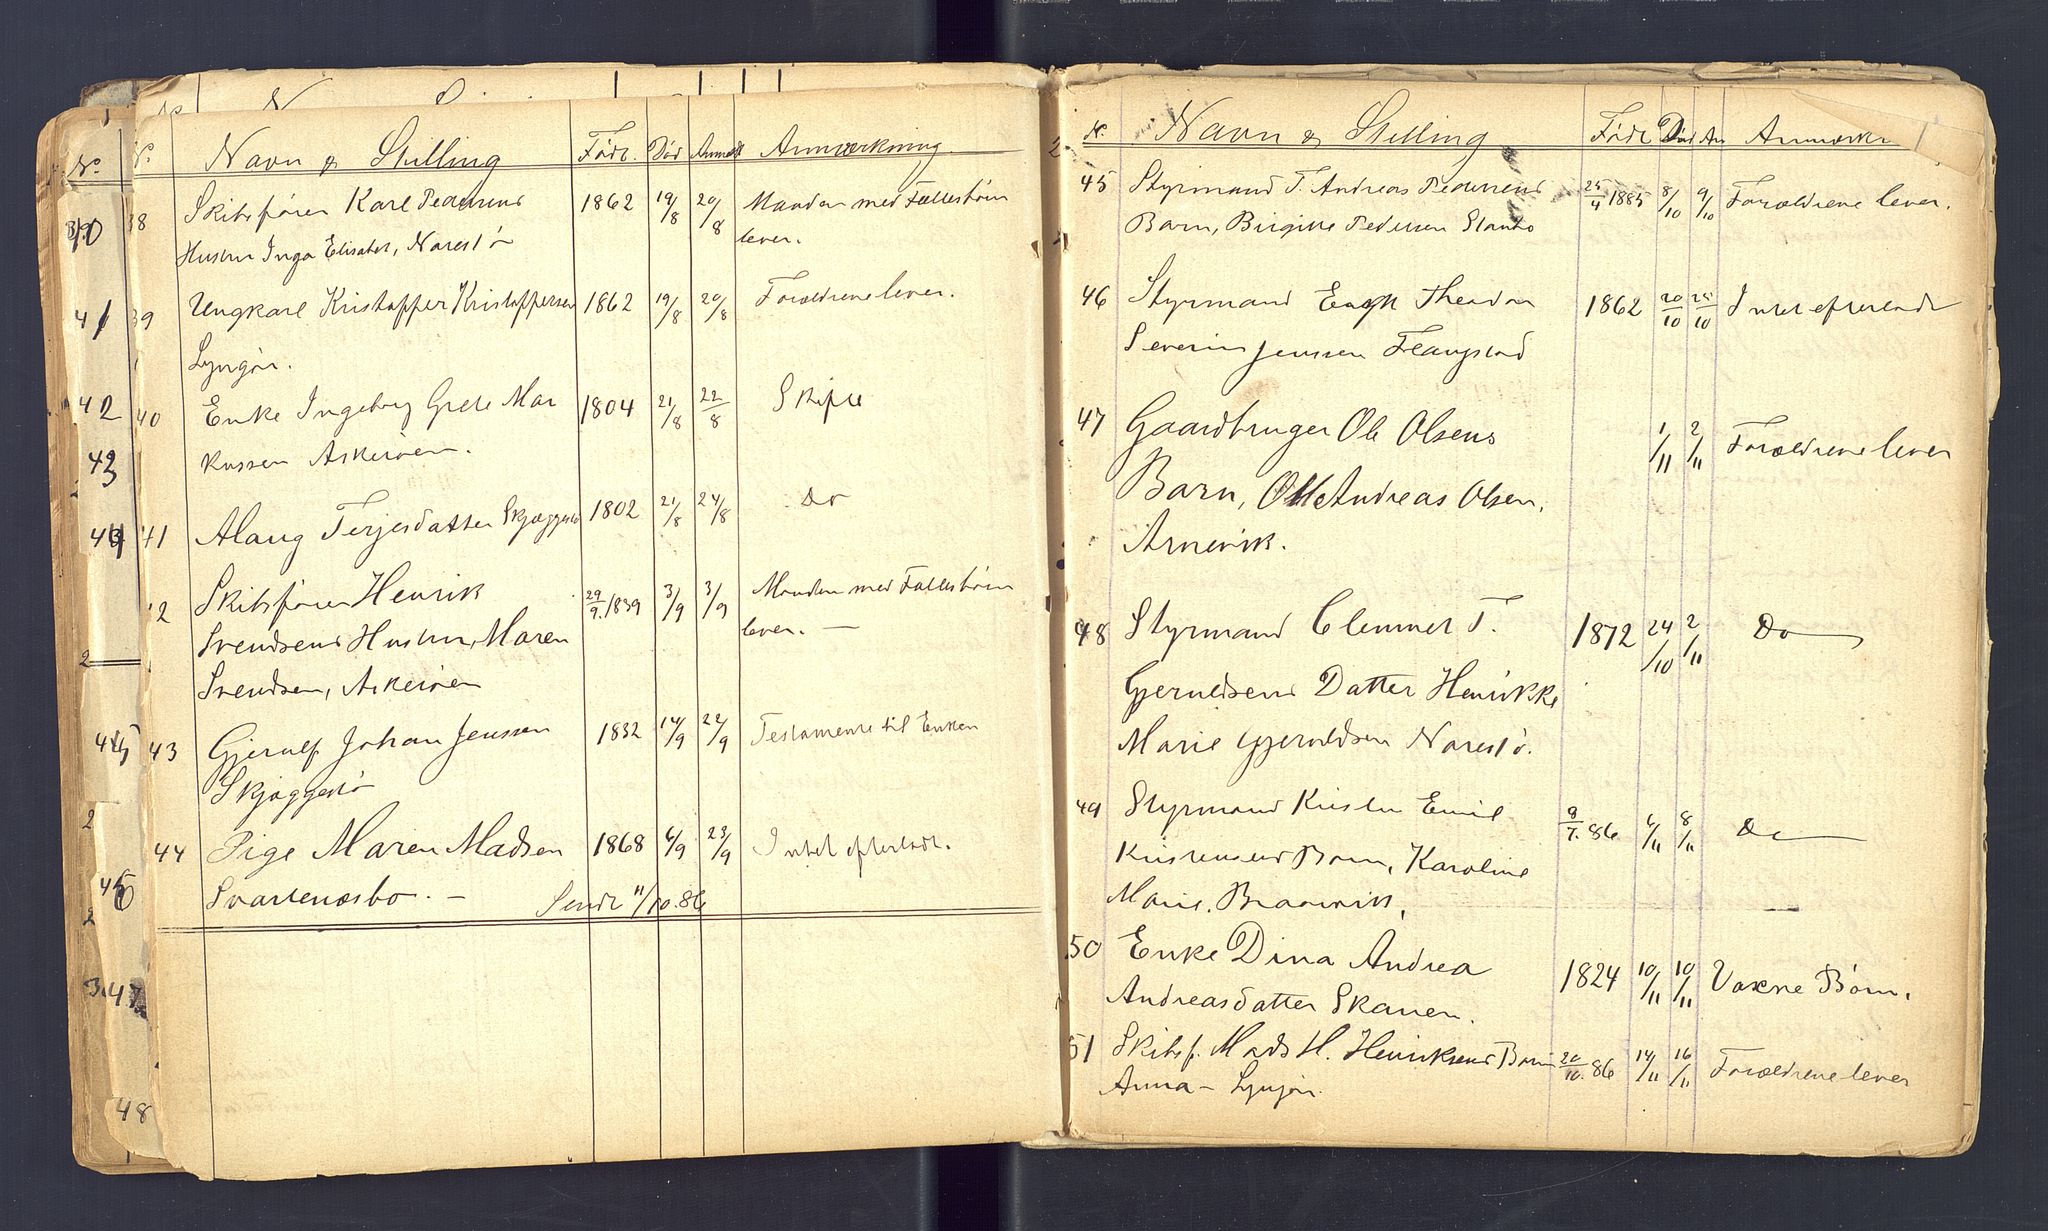 No. Navn & Stilling Født. Død Anmeldt Anmærkning.
38 Skibsfører Karl Pedersens 1862 19/8 20/8 Manden med Fællesbørn
Hustru Inga Elisabet, Narestø lever.
39 Ungkarl Kristoffer Kristoffersen 1862 19/8 20/8 Forældrene lever.
Lyngør.
40 Enke Ingeborg Grete Mar 1804 21/8 22/8 Skifte
kussen Askerøen.
41 Aslaug Terjesdatter Skjæggestø 1802 21/8 24/8 Do
42 Skibsfører Henrik 29/9.1839 3/9 3/9 Manden med Fællesbørn
Svendsens Hustru, Maren lever. —
Svendsen, Askerøen
43 Gjerulf Johan Jenssen 1832 14/9 22/9 Testamente til Enken
Skjæggestø
44 Pige Maren Madsen 1868 6/9 23/9 Intet efterladt.
Svartenæsbo. — Sendt 11/10.86
No.
40
41
42
43
44
45
46
47
48
N. Navn & Stilling Født Død An Anmærkn
45 Styrmand T. Andreas Pedersens 25/4 1885 8/10 9/10 Forældrene lever.
Barn, Birgitte Pedersen
46 Styrmand Theodor 1862 20/10 25/10 Intet efterladt
Severin Jenssen Flangstad
47 Gaardbruger Ole Olsens 1/11 2/11 Forældrene lever
Barn, Otto Andreas Olsen,
Arnevik.
48 Styrmand Clemmet T. 1872 24/10 2/11 Do —
Gjeruldsens Datter Henrikke
Marie Gjeruldsen Narestø.
49 Styrmand Kristen Emil 9/7.86 6/11 8/11 Do —
Kristensens Barn, Karoline
Marie. Braarvik, —
50 Enke Dina Andrea 1824 10/11 10/11 Voxne Børn.
Andreasdatter Skaren.
51 Skibsf. Mads H. Henriksens Barn 20/10.86 14/11 16/11 Forældrene lever
Anna — Lyngør.